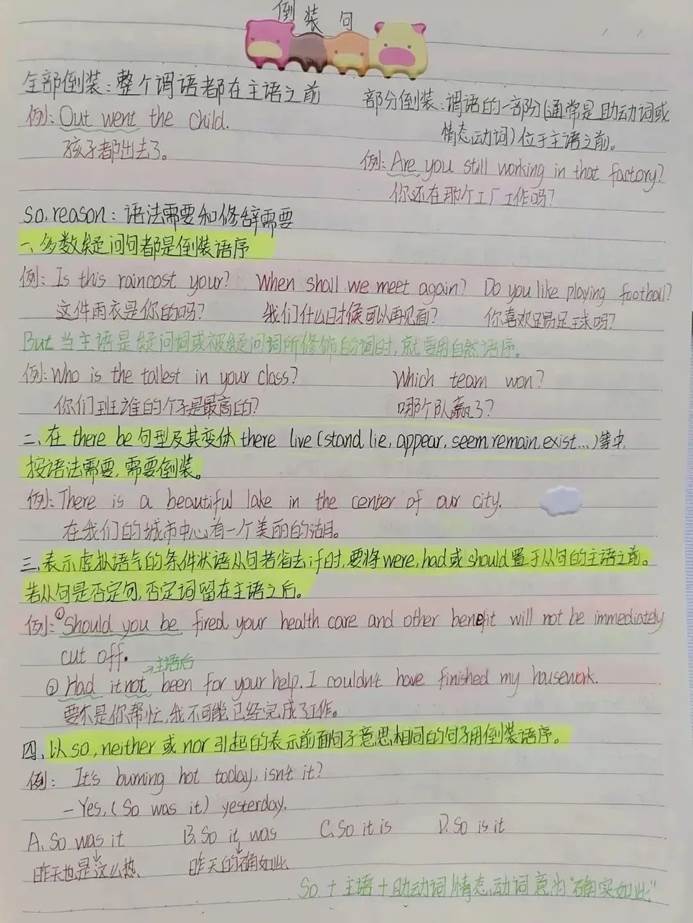 倒装句
全部倒装:整个谓语都在主语之前
例:Out went the child.
孩子都出去了。
部分倒装:谓语的一部分(通常是助动词或
情态动词)位于主语之前。
例:Are you still working in that factory?
你还在那个工厂工作吗?
so, reason:语法需要和修辞需要
一、多数疑问句都是倒装语序
例:Is this raincost your? When shall we meet again? Do you like playing football?
这件雨衣是你的吗? 我们什么时候可以再见面? 你喜欢踢足球吗?
But 当主语是疑问词或被疑问词所修饰的词时,就要用自然语序。
例:Who is the tallest in your class? Which team won?
你们班谁的个子是最高的? 哪个队赢了?
二、在 there be 句型及其变体 there live (stand, lie, appear, seem remain, exist...)等中,
按语法需要,需要倒装。
例:There is a beautiful lake in the center of our city.
在我们的城市中心有一个美丽的湖。
三、表示虚拟语气的条件状语从句若省去if时,要将were, had或should置于从句的主语之前。
若从句是否定句,否定词留在主语之后。
例:①Should you be fired your health care and other benefit will not be immediately
cut off.
→主语后
②Had it not been for your help. I couldn't have finished my housework.
要不是你帮忙,我不可能已经完成了工作。
四、以so, neither 或 nor 引起的表示前面句子意思相同的句子用倒装语序。
例:It's burning hot today, isn't it?
- Yes, (So was it) yesterday.
A. So was it B. So it was C. So it is D. So is it
昨天也是这么热、 昨天的确如此
So + 主语 + 助动词/情态动词 意为"确实如此"